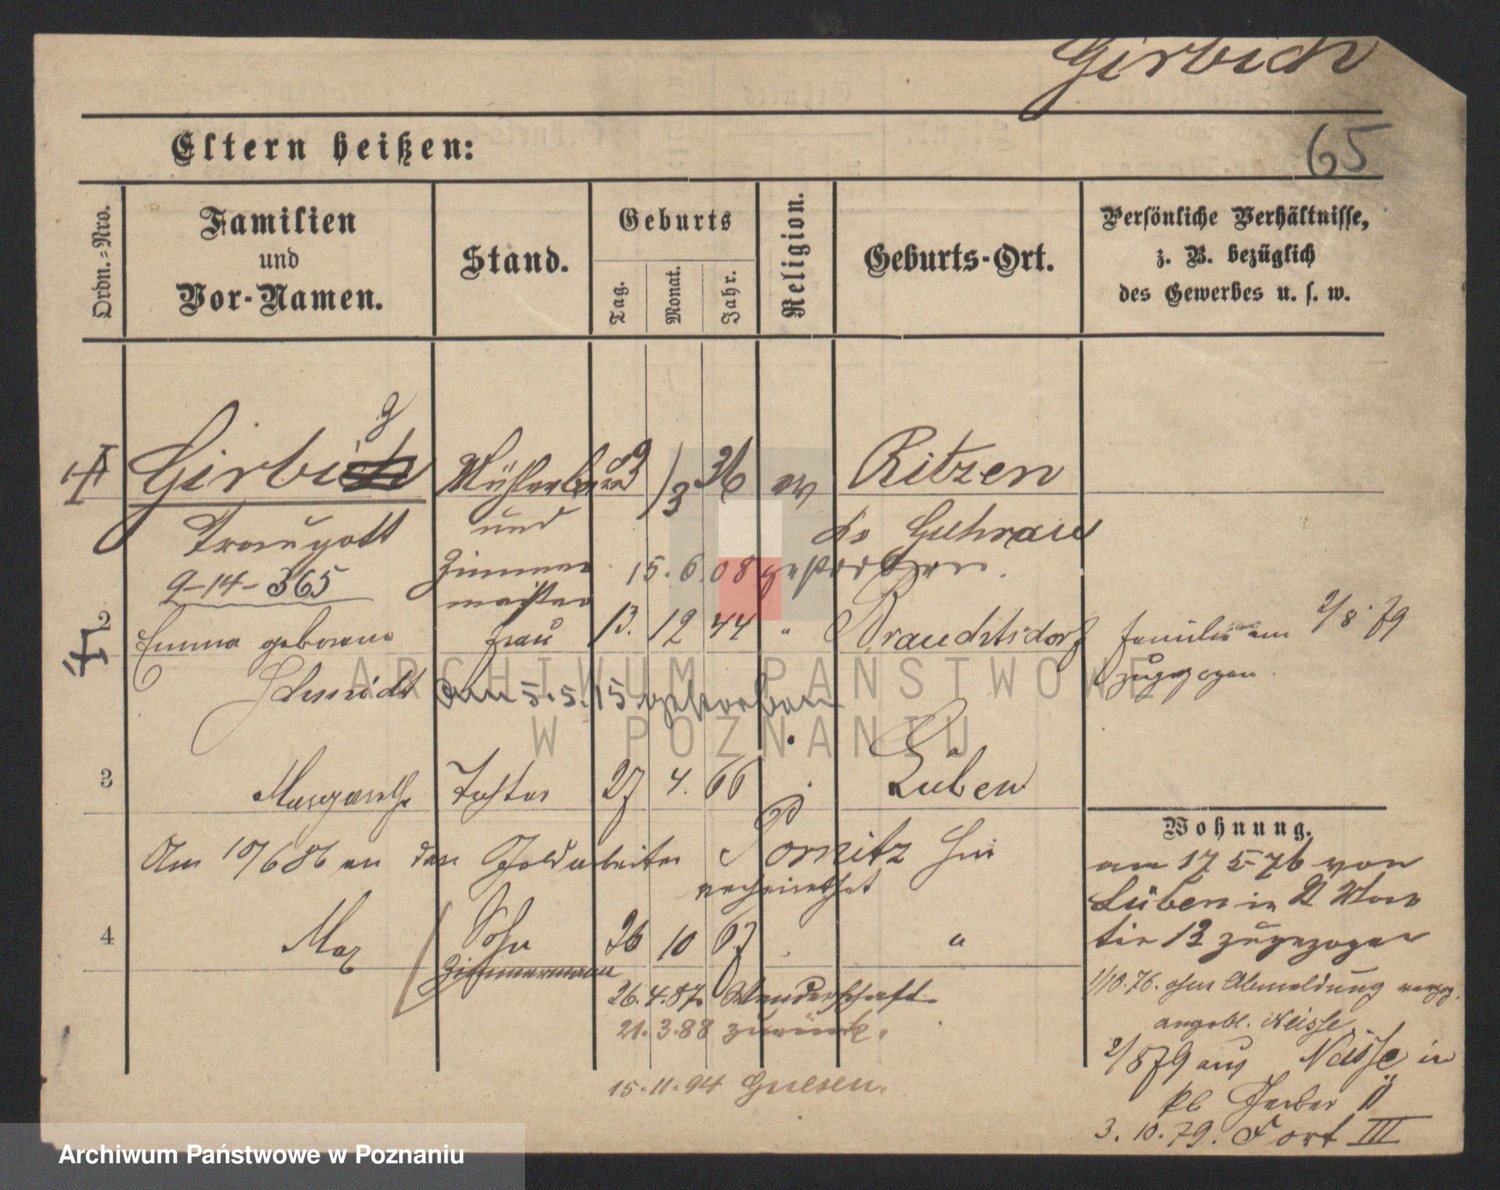 Girbich
65
Eltern heißen:
Ordn.=Nro.
Familien
und
Vor-Namen.
Stand.
Geburts
Tag.
Monat.
Jahr.
Religion.
Geburts-Ort.
Persönliche Verhältnisse,
z. B. bezüglich
des Gewerbes u. s. w.
g
Girbich Mühlenbau 29/3 36 ev Ritzen
Traugott und Guhrau
9-14-365 Zimmer 15.6.08 gestorben.
meister
2 Emma geborene Frau 13. 12 44 " Brauchtsdorf Familie am 2/8 79
Schmidt zugezogen
am 5.5.15 gestorben
ARCHIWUM PAŃSTWOWE
W POZNANIU
3 Margarethe Tochter 27 4. 66 Lüben
Wohnung.
Am 10/6 86 an den Goldarbeiter Pornitz hier
verheirathet
am 17 5-76 von
Lüben in St Mar
tin 13 zugezogen
4 Max Sohn 26 10 67 "
Zimmermann
26.4.87. Wanderschaft
21.3.88 zurück.
15.11.94 Gnesen.
1/10.76. ohne Abmeldung verzog.
angebl. Neisse
2/8 79 aus Neisse in
3.10.79. Fort III
Archiwum Państwowe w Poznaniu